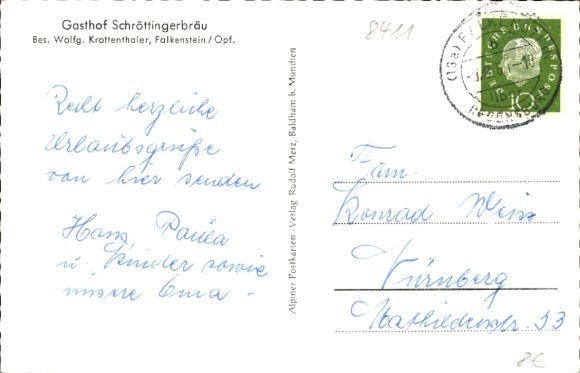 Gasthof Schröttingerbräu
Bes. Wolfg. Krottenthaler, Falkenstein / Opf.
Recht herzliche
Urlaubsgrüße
von hier senden
Hans, Paula
u. Kinder sowie
unsere Oma -
Alpiner Postkarten-Verlag Rudolf Merz, Baldham b. München
8411
(13a)
REGENSBURG
DEUTSCHE BUNDESPOST
10
Fam.
Konrad Weiss
Nürnberg
Mathildenstr. 33
8€